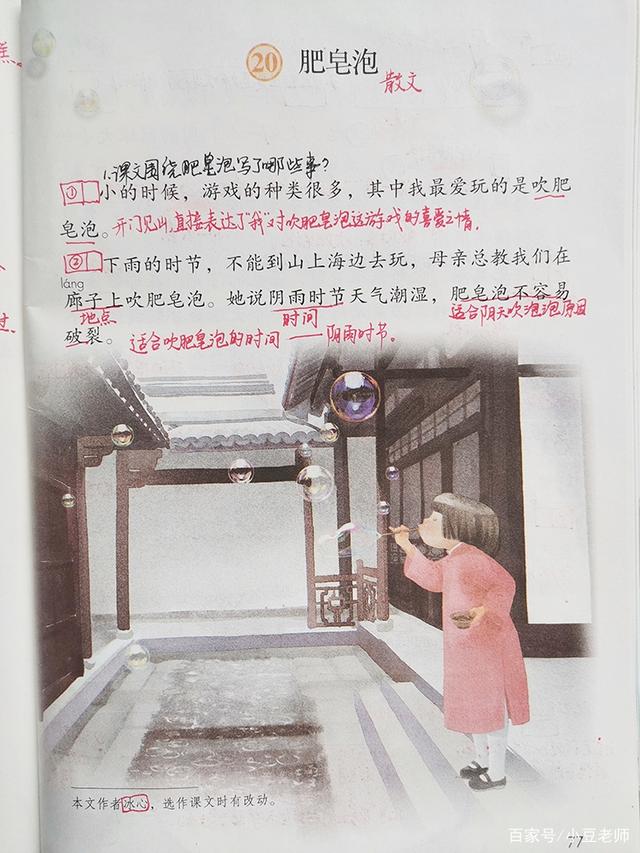 20 肥皂泡
散文
1.课文围绕肥皂泡写了哪些事?
① 小的时候，游戏的种类很多，其中我最爱玩的是吹肥
皂泡。开门见山，直接表达了“我”对吹肥皂泡这游戏的喜爱之情。
② 下雨的时节，不能到山上海边去玩，母亲总教我们在
láng
廊子上吹肥皂泡。她说阴雨时节天气潮湿，肥皂泡不容易
地点
时间
适合阴天吹泡泡原因
破裂。适合吹肥皂泡的时间——阴雨时节。
本文作者冰心，选作课文时有改动。
百家号/小豆老师
77